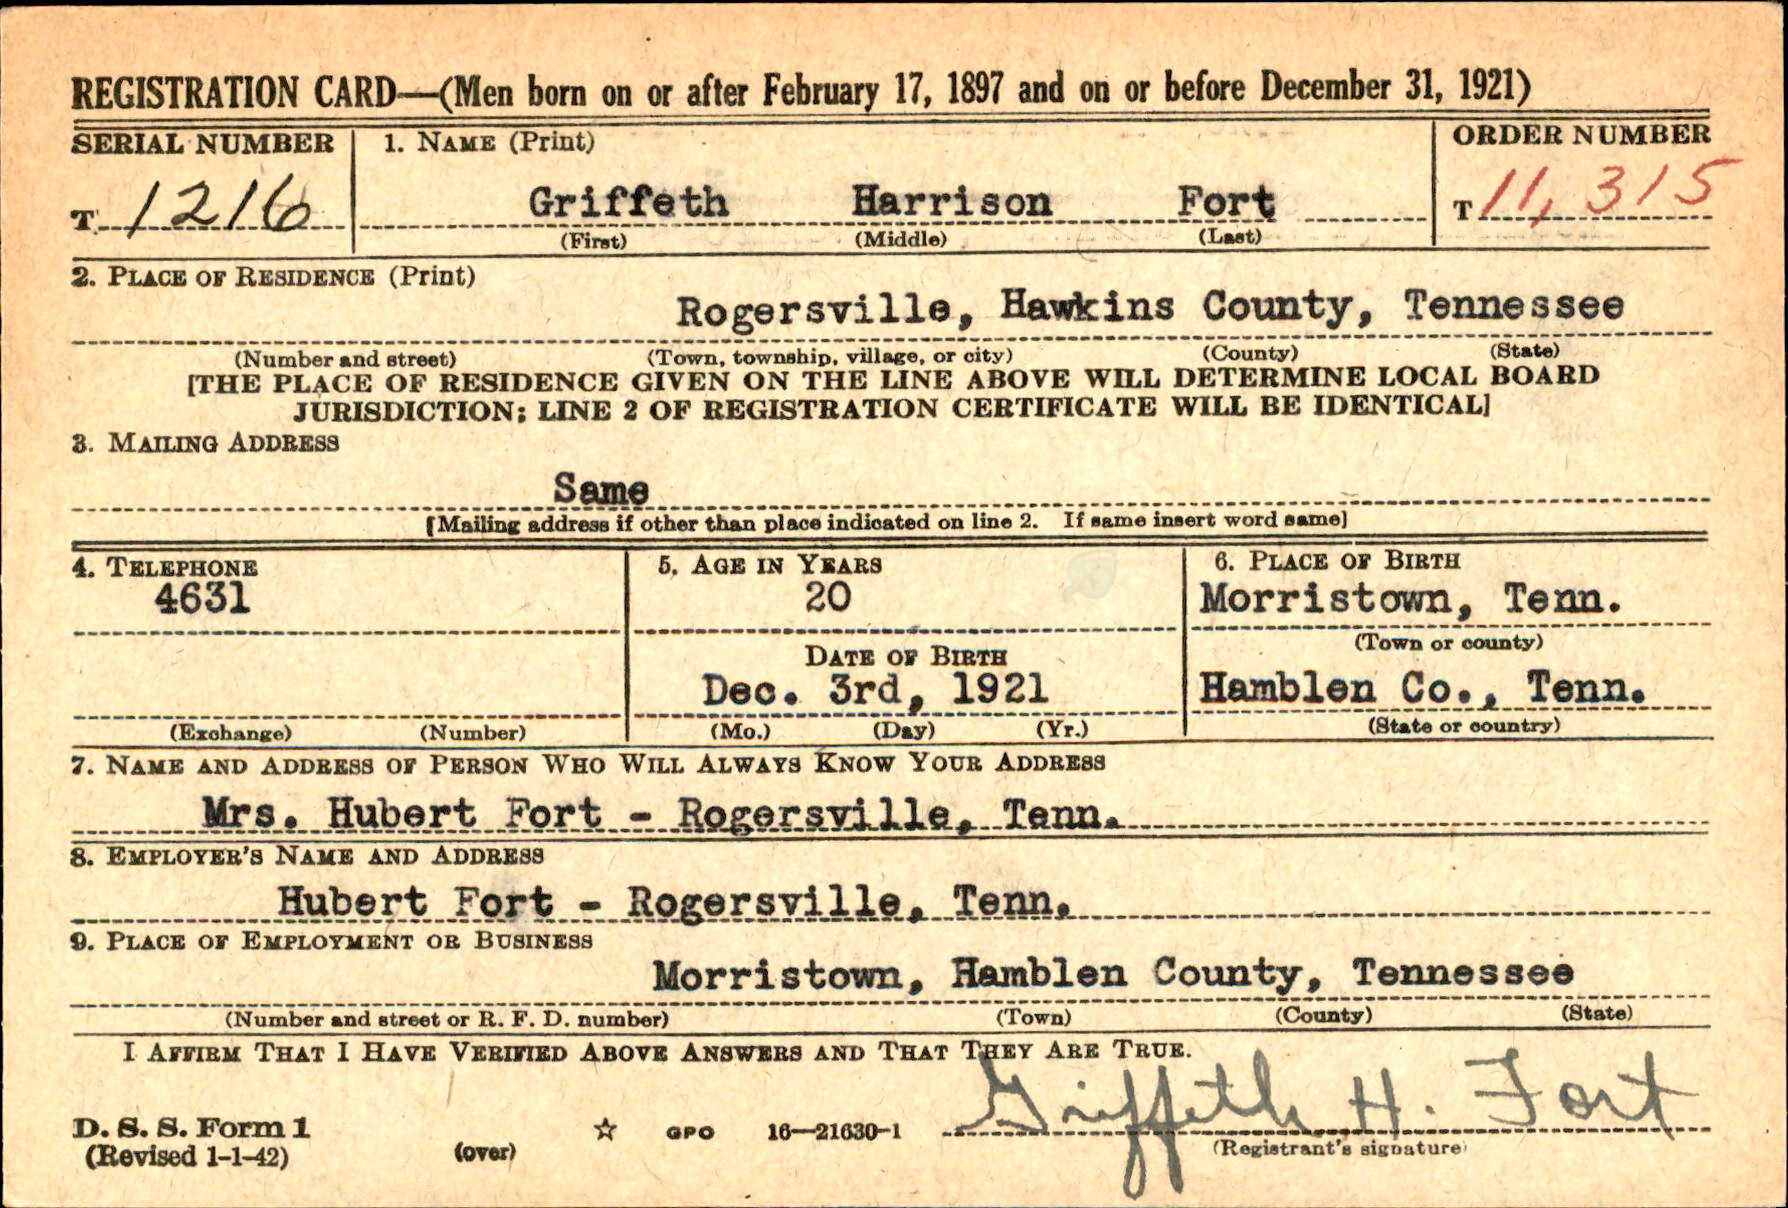 REGISTRATION CARD—(Men born on or after February 17, 1897 and on or before December 31, 1921)
SERIAL NUMBER 1. NAME (Print) ORDER NUMBER
T 1216 Griffeth Harrison Fort T 11,315
(First) (Middle) (Last)
2. PLACE OF RESIDENCE (Print)
Rogersville, Hawkins County, Tennessee
(Number and street) (Town, township, village, or city) (County) (State)
[THE PLACE OF RESIDENCE GIVEN ON THE LINE ABOVE WILL DETERMINE LOCAL BOARD
JURISDICTION; LINE 2 OF REGISTRATION CERTIFICATE WILL BE IDENTICAL]
3. MAILING ADDRESS
Same
[Mailing address if other than place indicated on line 2. If same insert word same]
4. TELEPHONE 5. AGE IN YEARS 6. PLACE OF BIRTH
4631 20 Morristown, Tenn.
(Town or county)
DATE OF BIRTH
Dec. 3rd, 1921 Hamblen Co., Tenn.
(Exchange) (Number) (Mo.) (Day) (Yr.) (State or country)
7. NAME AND ADDRESS OF PERSON WHO WILL ALWAYS KNOW YOUR ADDRESS
Mrs. Hubert Fort - Rogersville, Tenn.
8. EMPLOYER'S NAME AND ADDRESS
Hubert Fort - Rogersville, Tenn.
9. PLACE OF EMPLOYMENT OR BUSINESS
Morristown, Hamblen County, Tennessee
(Number and street or R. F. D. number) (Town) (County) (State)
I AFFIRM THAT I HAVE VERIFIED ABOVE ANSWERS AND THAT THEY ARE TRUE.
Griffeth H. Fort
D. S. S. Form 1 GPO 16—21630-1
(Revised 1-1-42) (over) (Registrant's signature)